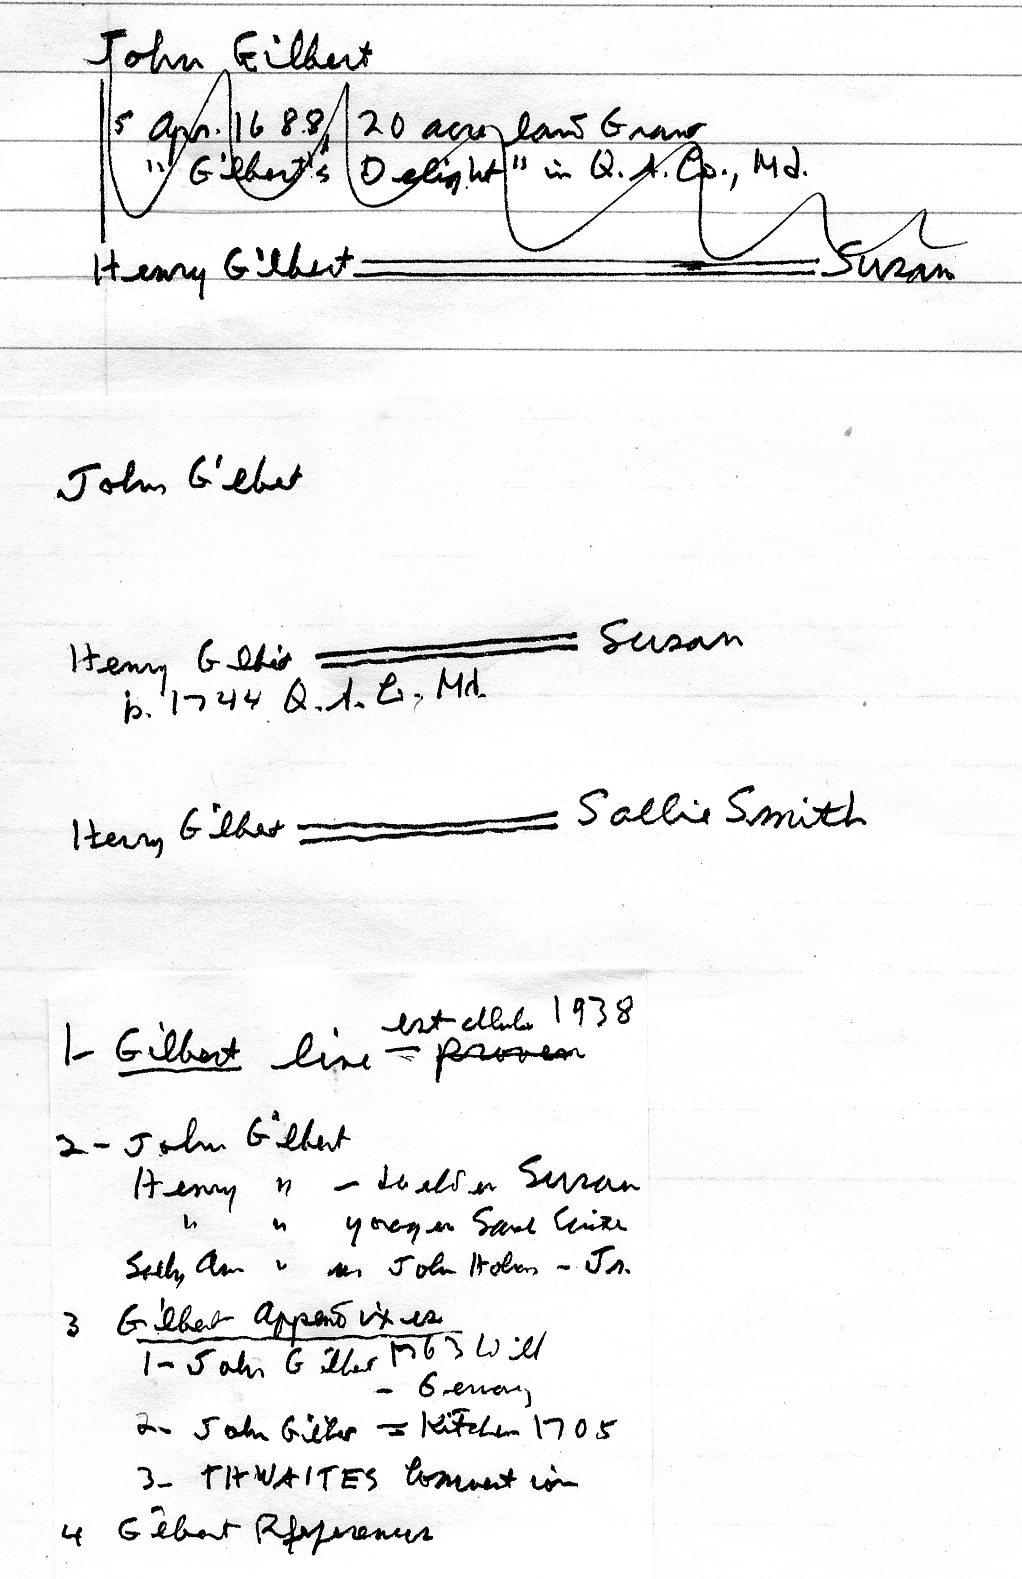 John Gilbert
5 Apr. 1688, 20 acre land Grant
"Gilbert's Delight" in Q. A. Co., Md.
Henry Gilbert Susan
John Gilbert
Henry Gilbert Susan
b. 1744 Q. A. Co., Md.
Henry Gilbert Sallie Smith
1938
1- Gilbert line = proven
2- John Gilbert
Henry " - Susan
" "
Sally Ann " John - Jr.
3 Gilbert Appendixes
1- John Gilbert 1763 Will
-
2- John Gilbert = Kitchen 1705
3- THWAITES Connection
4 Gilbert References